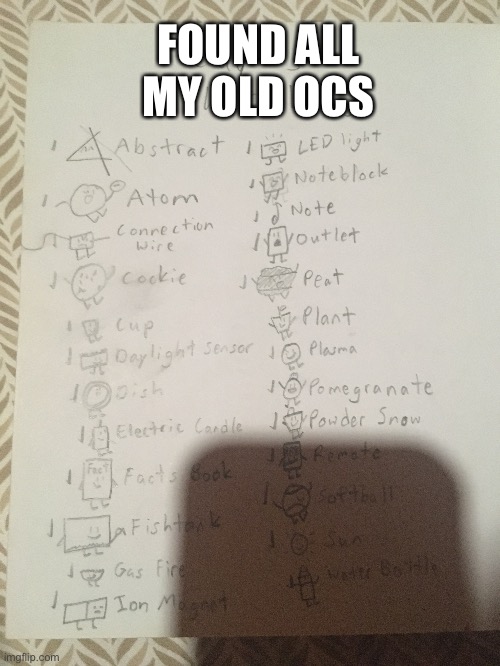 FOUND ALL
MY OLD OCS
Abstract
Atom
Connection
Wire
Cookie
Cup
Daylight Sensor
Dish
Electric Candle
Fact
Facts Book
Fishtank
Gas Fire
Ion Magnet
LED light
Noteblock
Note
Outlet
Peat
Plant
Plasma
Pomegranate
Powder Snow
Remote
Softball
Sun
Water Bottle
imgflip.com